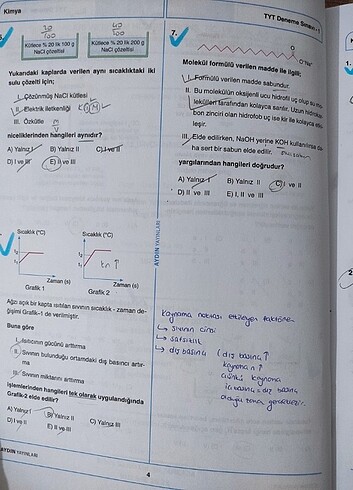 Kimya
TYT Deneme Sınavı - 1
20
100
40
200
Kütlece % 20 lik 100 g
NaCl çözeltisi
Kütlece % 20 lik 200 g
NaCl çözeltisi
Yukarıdaki kaplarda verilen aynı sıcaklıktaki iki
sulu çözelti için;
I. Çözünmüş NaCl kütlesi
II. Elektrik iletkenliği
III. Özkütle
niceliklerinden hangileri aynıdır?
A) Yalnız I
B) Yalnız II
C) I ve II
D) I ve III
E) II ve III
7.
O
O⁻Na⁺
Molekül formülü verilen madde ile ilgili;
I. Formülü verilen madde sabundur.
II. Bu molekülün oksijenli ucu hidrofil uç olup su mo-
lekülleri tarafından kolayca sarılır. Uzun hidrokar-
bon zinciri olan hidrofob uç ise kir ile kolayca etki-
leşir.
III. Elde edilirken, NaOH yerine KOH kullanılırsa da-
ha sert bir sabun elde edilir.
yargılarından hangileri doğrudur?
A) Yalnız I
B) Yalnız II
C) I ve II
D) II ve III
E) I, II ve III
Sıcaklık (°C)
Sıcaklık (°C)
Zaman (s)
Zaman (s)
Grafik 1
Grafik 2
kn ↑
Ağzı açık bir kapta ısıtılan sıvının sıcaklık - zaman de-
ğişimi Grafik-1 de verilmiştir.
Buna göre
I. Isıtıcının gücünü artırma
II. Sıvının bulunduğu ortamdaki dış basıncı artır-
ma
III. Sıvının miktarını artırma
işlemlerinden hangileri tek olarak uygulandığında
Grafik-2 elde edilir?
A) Yalnız I
B) Yalnız II
C) Yalnız III
D) I ve II
E) II ve III
Kaynama noktası etkileyen faktörler
↳ sıvının cinsi
↳ safsızlık
↳ dış basınç ( dış basınç ↑
kaynama n ↑
çünkü kaynama
iç basınç = dış basınç
olduğu zaman gerçekleşir.
AYDIN YAYINLARI
AYDIN YAYINLARI
4